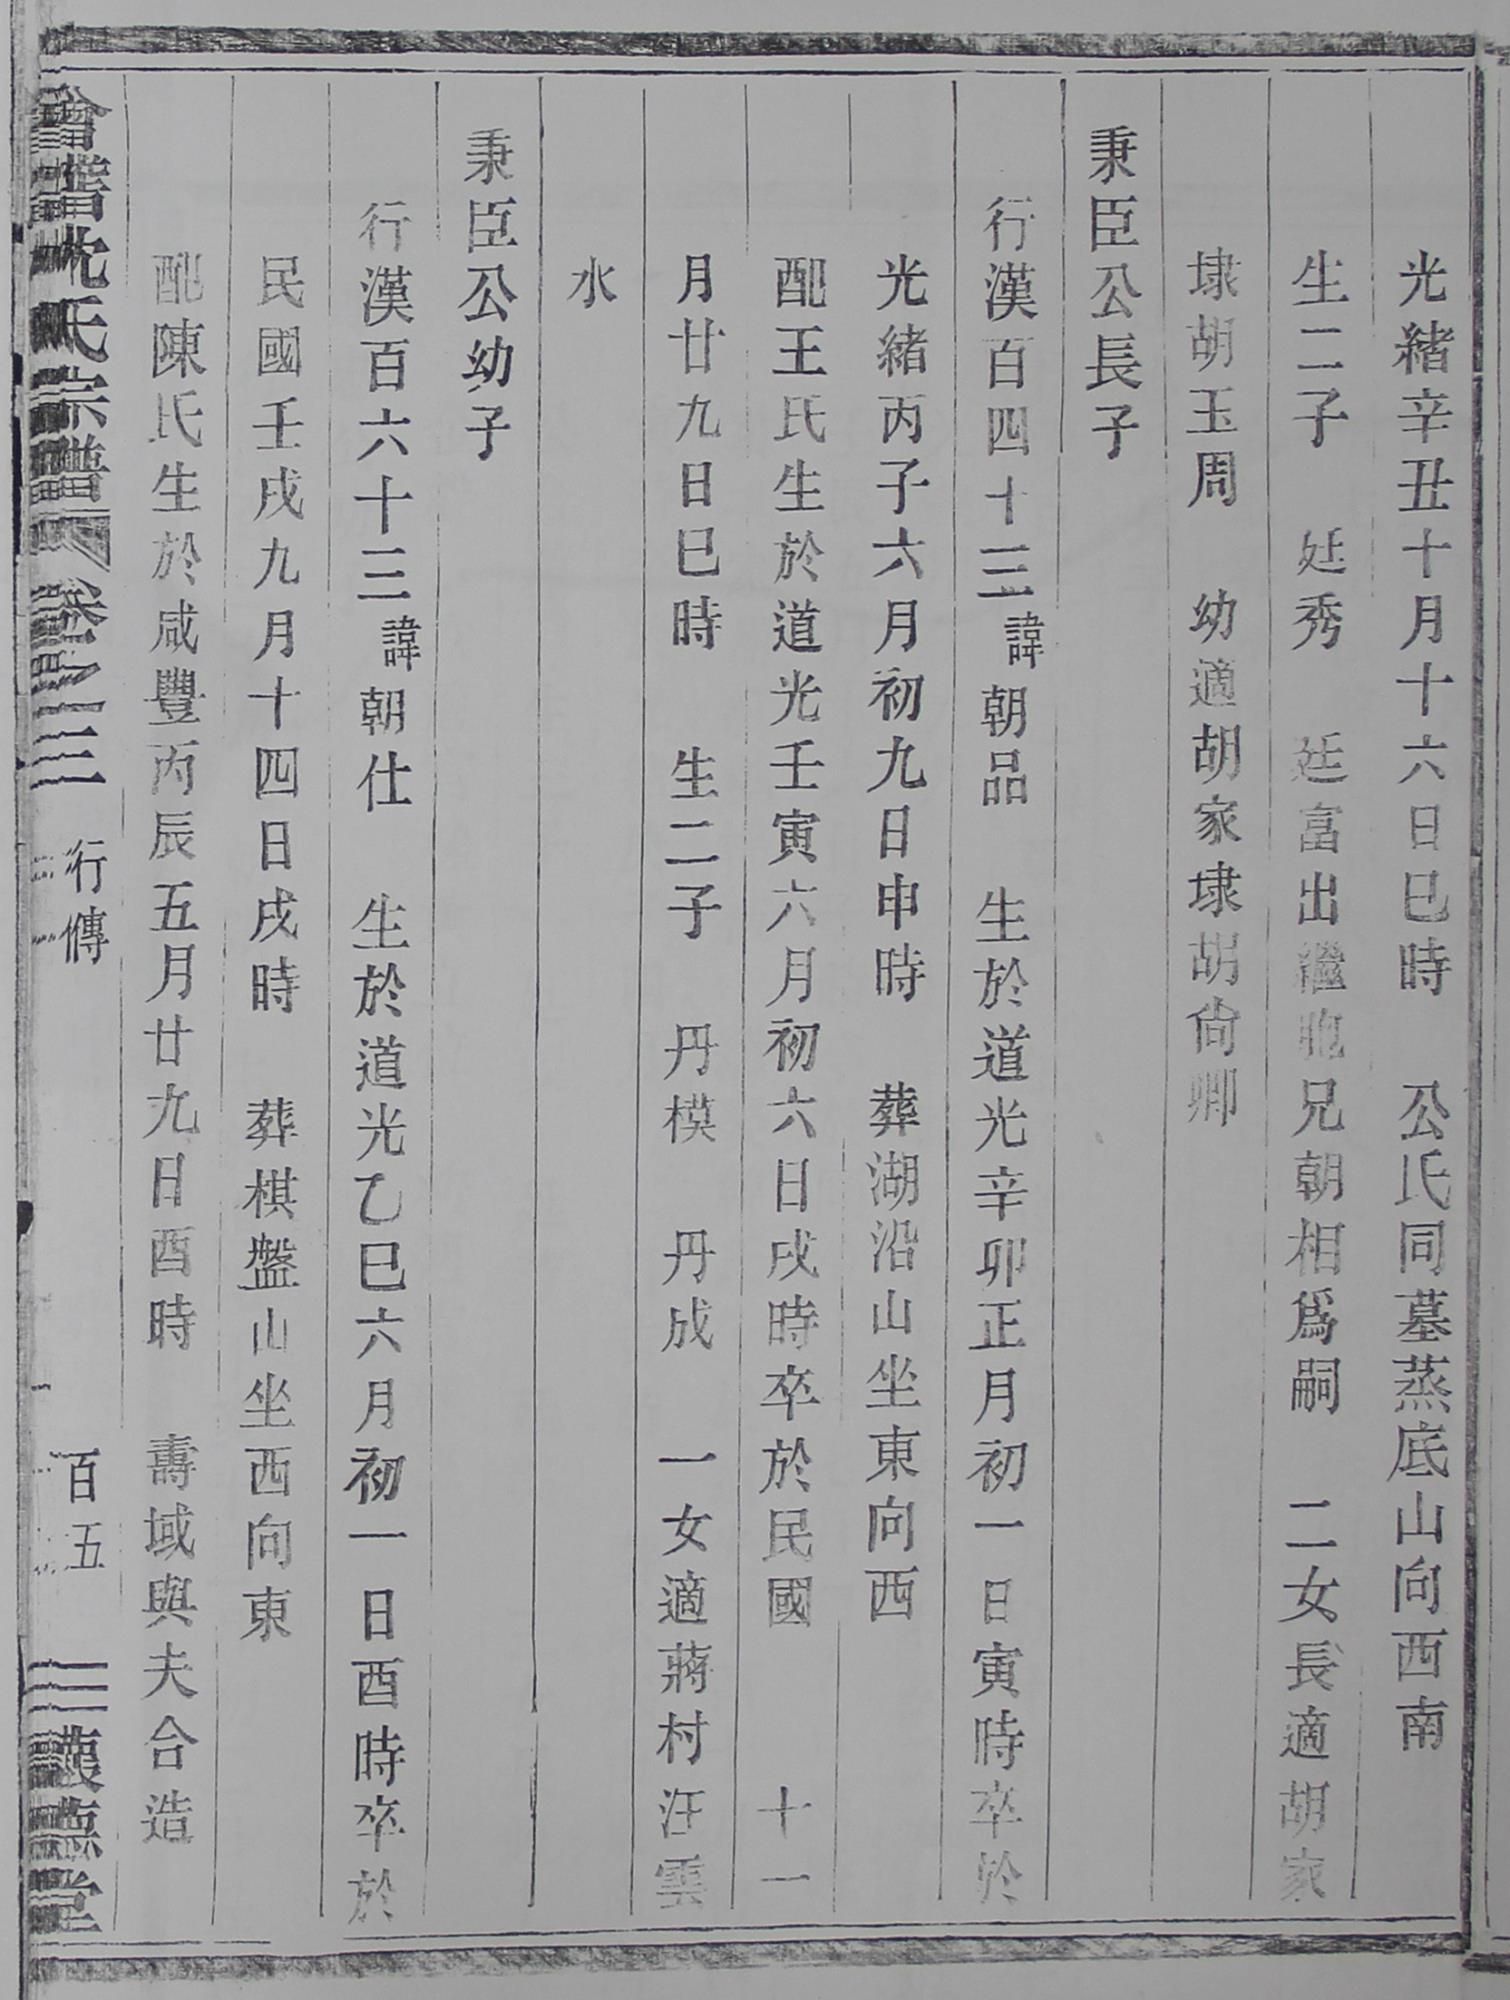 光緒辛丑十月十六日巳時　公氏同墓蒸底山向西南
生二子　廷秀　廷富出繼胞兄朝相爲嗣　二女長適胡家
埭胡玉周　幼適胡家埭胡尙卿
秉臣公長子
行漢百四十三諱朝品　生於道光辛卯正月初一日寅時卒於
光緒丙子六月初九日申時　葬湖沿山坐東向西
配王氏生於道光壬寅六月初六日戌時卒於民國　十一
月廿九日巳時　生二子　丹模　丹成　一女適蔣村汪雲
水
秉臣公幼子
行漢百六十三諱朝仕　生於道光乙巳六月初一日酉時卒於
民國壬戌九月十四日戌時　葬棋盤山坐西向東
配陳氏生於咸豐丙辰五月廿九日酉時　壽域與夫合造
會稽沈氏宗譜　卷三　行傳　百五　德堂